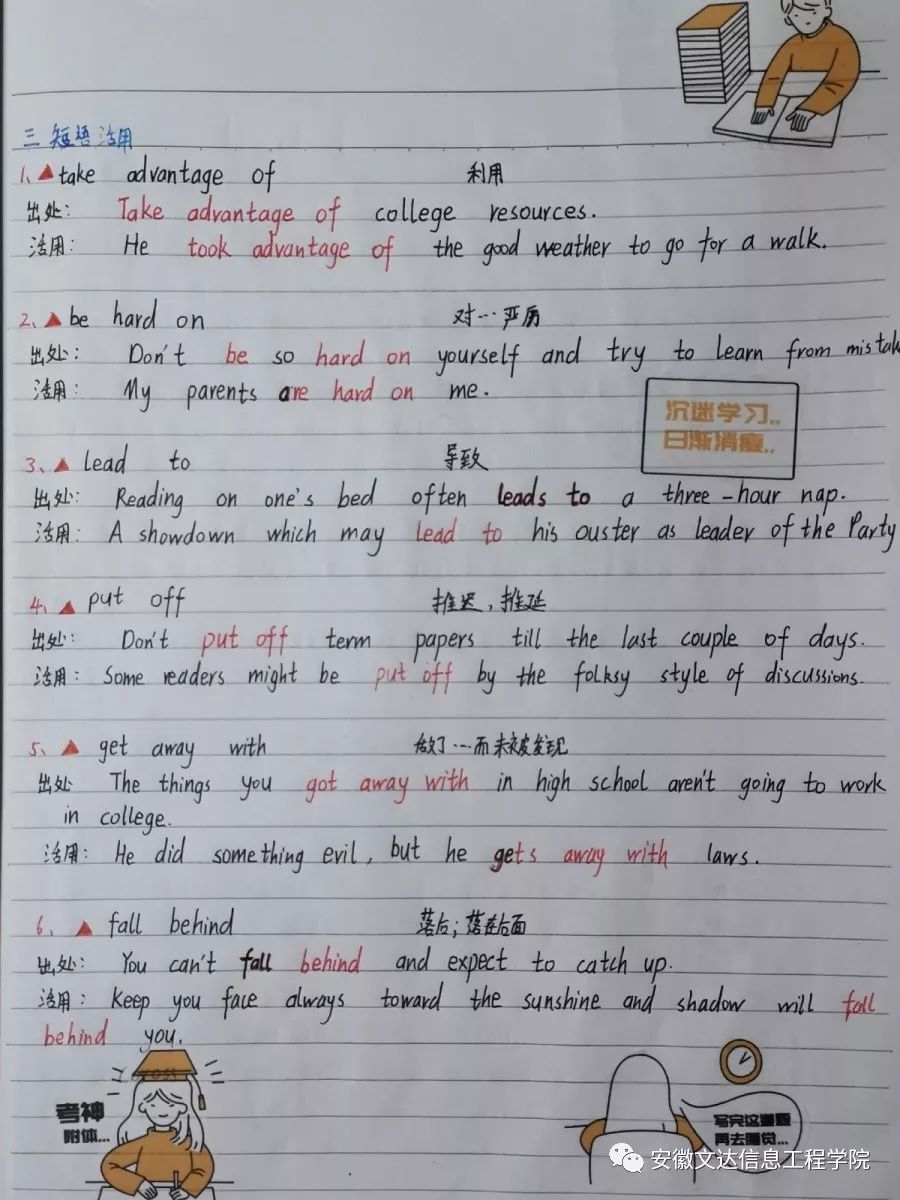 三 短语活用
1、▲take advantage of 利用
出处: Take advantage of college resources.
活用: He took advantage of the good weather to go for a walk.
2、▲be hard on 对…严厉
出处: Don't be so hard on yourself and try to learn from mistak
活用: My parents are hard on me.
沉迷学习..
日渐消瘦..
3、▲lead to 导致
出处: Reading on one's bed often leads to a three-hour nap.
活用: A showdown which may lead to his ouster as leader of the Party
4、▲put off 推迟,推延
出处: Don't put off term papers till the last couple of days.
活用: Some readers might be put off by the folksy style of discussions.
5、▲get away with 做了…而未被发现
出处 The things you got away with in high school aren't going to work
in college.
活用: He did something evil, but he gets away with laws.
6、▲fall behind 落后;落在后面
出处: You can't fall behind and expect to catch up.
活用: Keep you face always toward the sunshine and shadow will fall
behind you.
考神
附体...
写完这道题
再去睡觉...
安徽文达信息工程学院